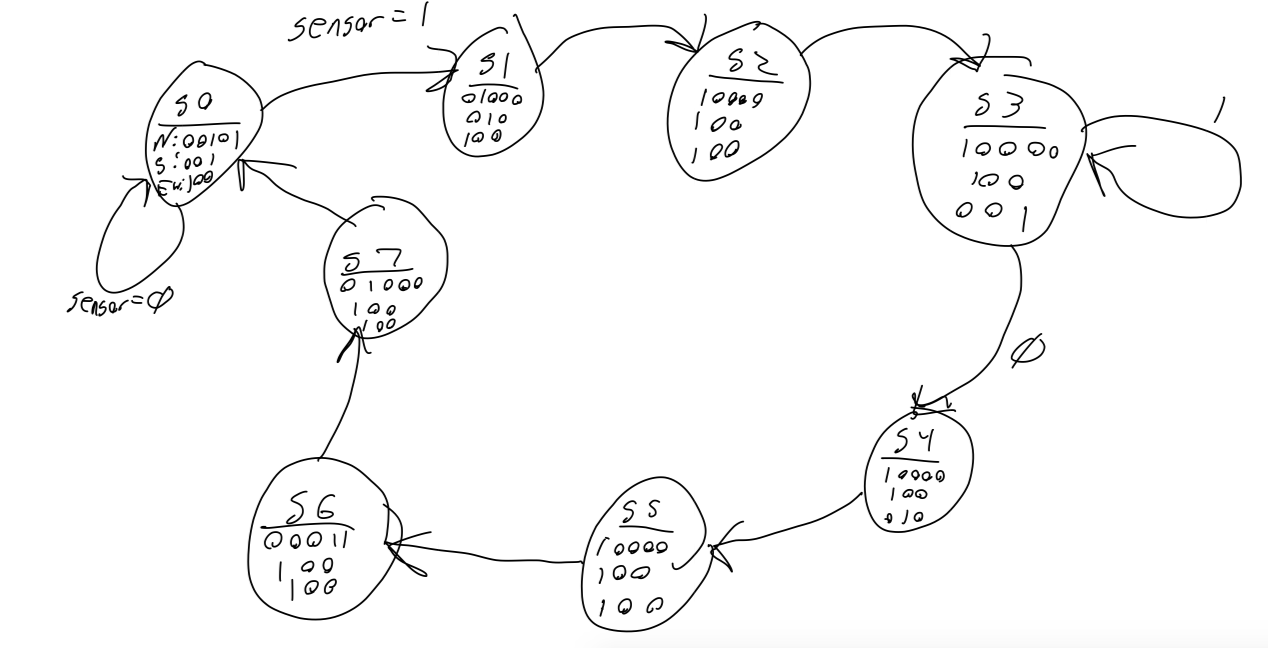 sensor = 1
S0
N:00101
S:001
EW:100
sensor=0
S1
01000
010
100
S2
10000
100
100
S3
10000
100
001
1
0
S4
10000
100
010
S5
10000
100
100
S6
00011
100
100
S7
01000
100
100